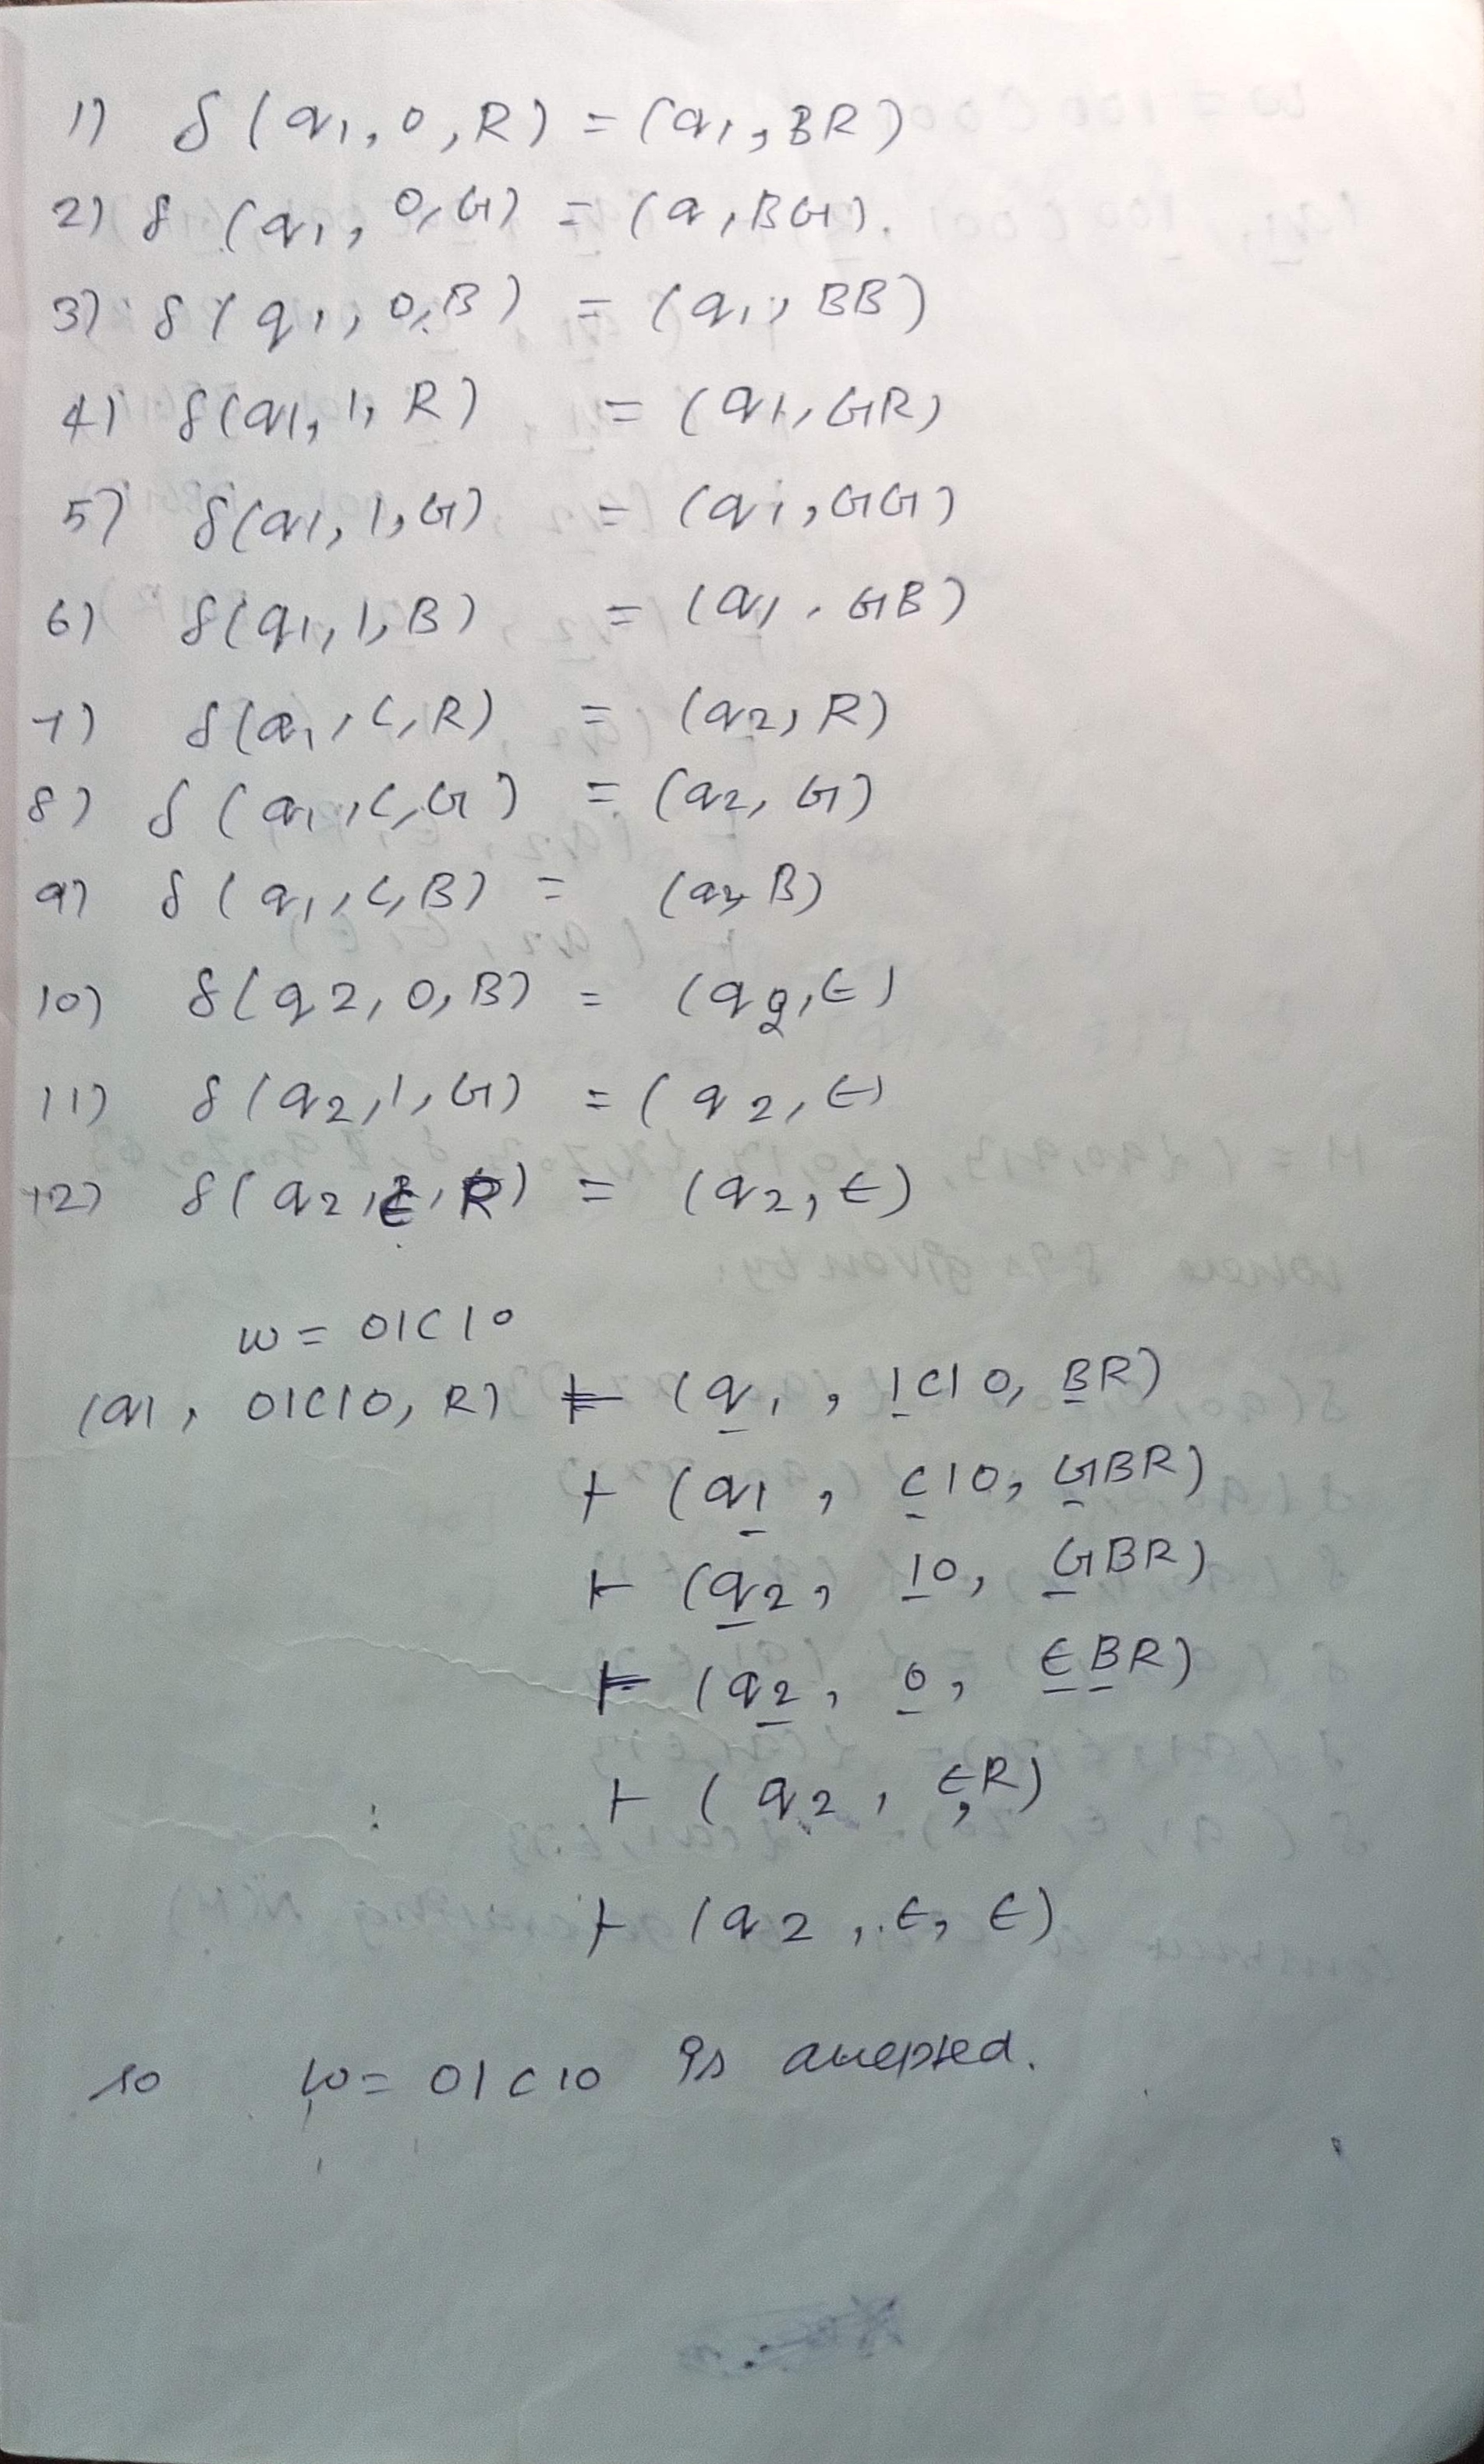 1) δ(q1, 0, R) = (q1, BR)
2) δ(q1, 0, G) = (q, BG).
3) δ(q1, 0, B) = (q1, BB)
4) δ(q1, 1, R) = (q1, GR)
5) δ(q1, 1, G) = (q1, GG)
6) δ(q1, 1, B) = (q1, GB)
7) δ(q1, C, R) = (q2, R)
8) δ(q1, C, G) = (q2, G)
9) δ(q1, C, B) = (q2, B)
10) δ(q2, 0, B) = (q2, ϵ)
11) δ(q2, 1, G) = (q2, ϵ)
12) δ(q2, ϵ, R) = (q2, ϵ)
w = 01C10
(q1, 01C10, R) ⊢ (q1, 1C10, BR)
⊢ (q1, C10, GBR)
⊢ (q2, 10, GBR)
⊢ (q2, 0, ϵBR)
⊢ (q2, ϵ, R)
⊢ (q2, ϵ, ϵ)
so w = 01C10 is accepted.